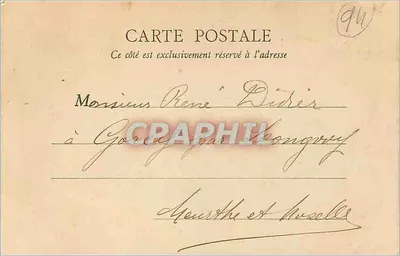 94
CARTE POSTALE
Ce côté est exclusivement réservé à l'adresse
Monsieur René Didier
à Gorcy par Longwy
CPRAPHIL
Meurthe et Moselle